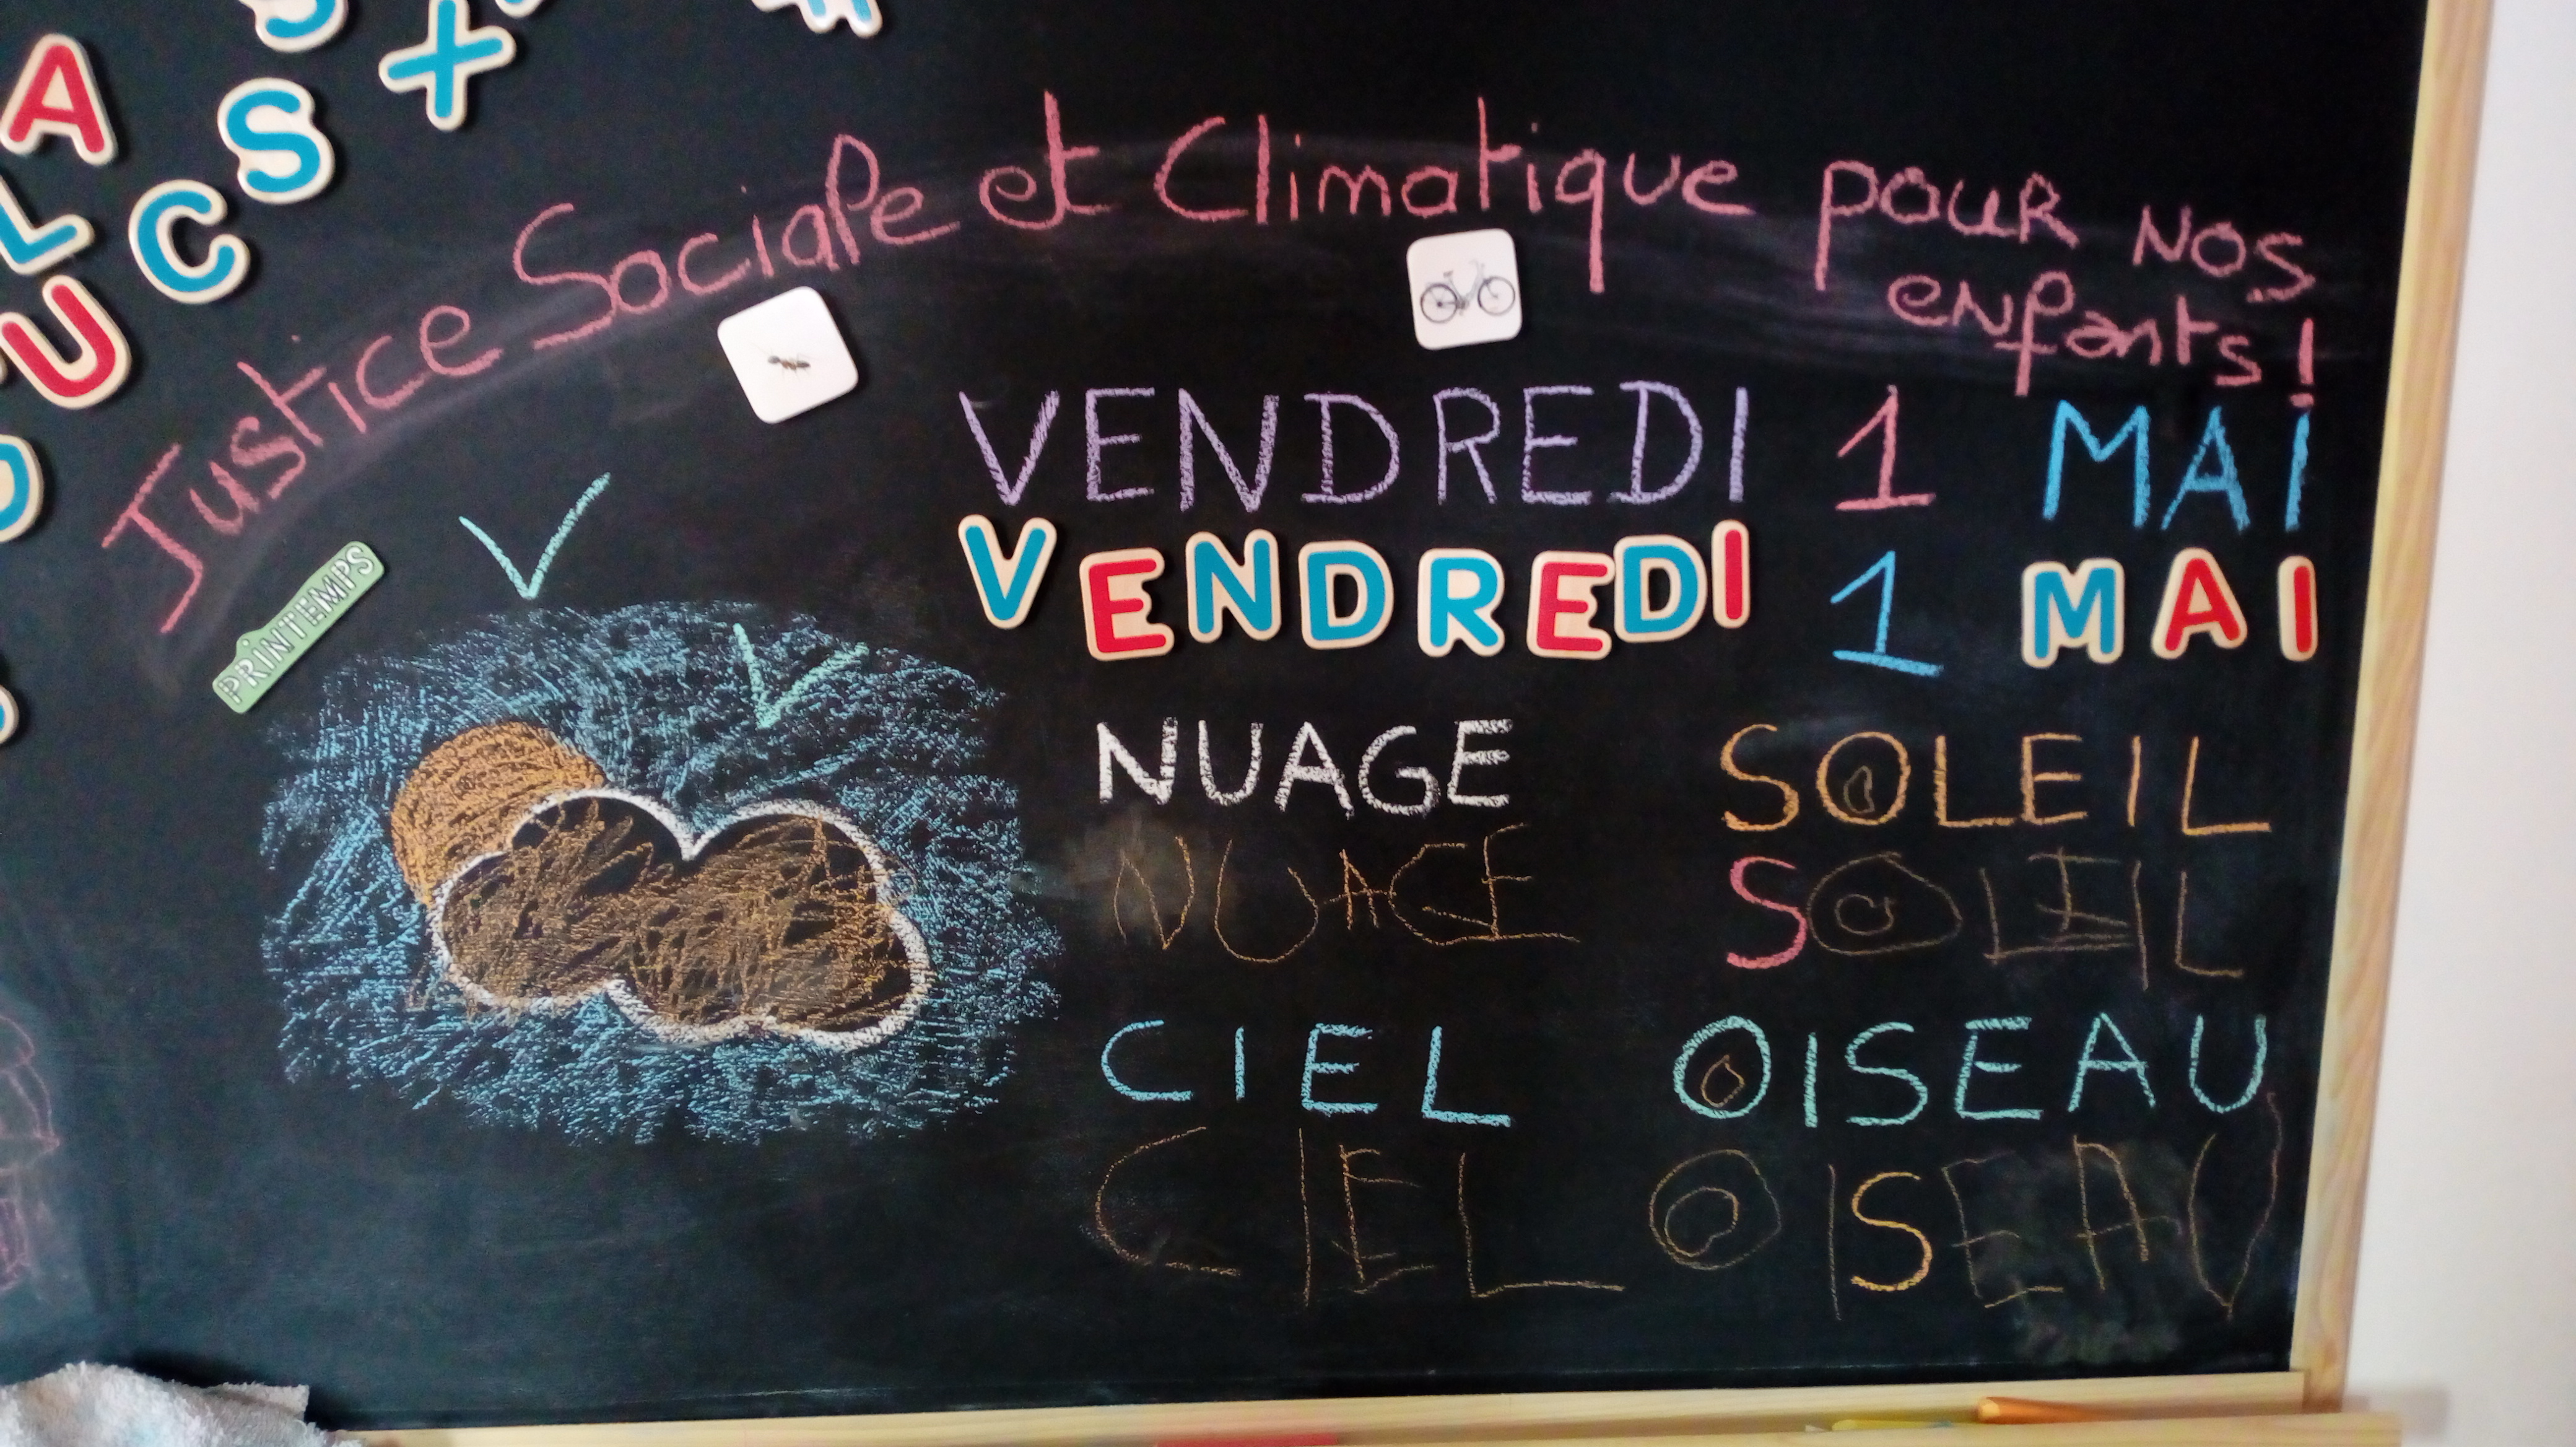 A
S
X
S
L
C
U
Justice Sociale et Climatique pour nos
enfants !
PRINTEMPS
VENDREDI 1 MAI
VENDREDI 1 MAI
NUAGE SOLEIL
NUAGE SOLEIL
CIEL OISEAU
CIEL OISEAU